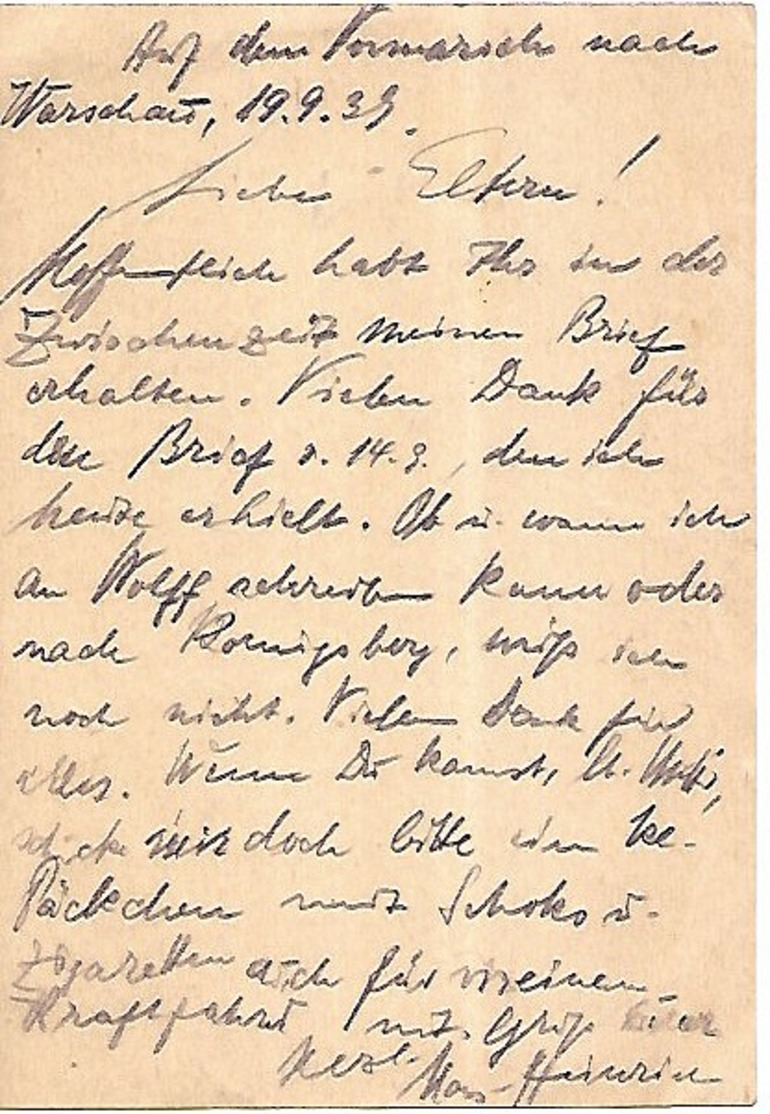 Auf dem Vormarsch nach
Warschau, 19.9.39.
Liebe Eltern!
Hoffentlich habt Ihr in der
Zwischenzeit meinen Brief
erhalten. Vielen Dank für
den Brief v. 14.9., den ich
heute erhielt. Ob u. wann ich
an Wolff schreiben kann oder
nach Königsberg, weiß ich
noch nicht. Vielen Dank für
alles. Wenn Du kannst, lb. Mutti,
schicke mir doch bitte ein kl.
Päckchen mit Schoko u.
Zigaretten auch für meinen
Kraftfahrer mit. Gruß Euer
Hans-Heinrich